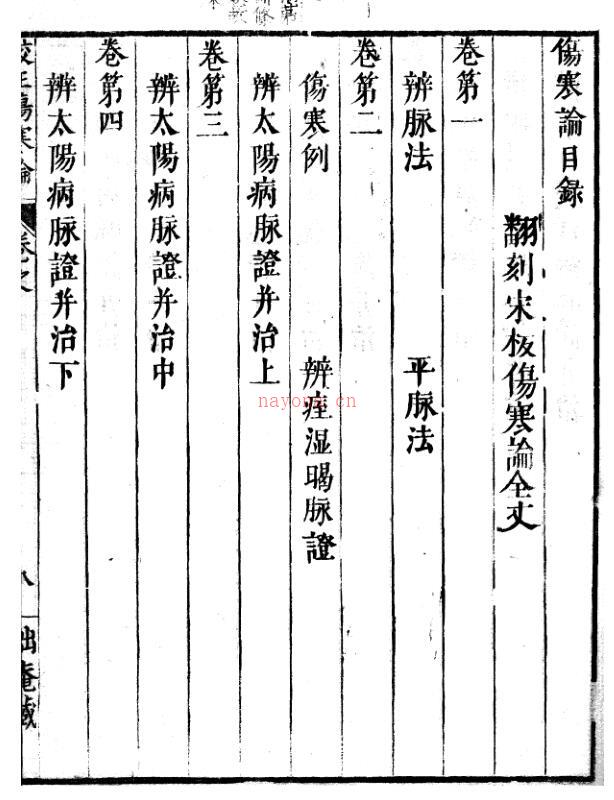 傷寒論目錄
翻刻宋板傷寒論全文
卷第一
辨脉法 平脉法
卷第二
傷寒例 辨痓湿暍脉證
辨太陽病脉證并治上
卷第三
辨太陽病脉證并治中
卷第四
辨太陽病脉證并治下
nayona.cn